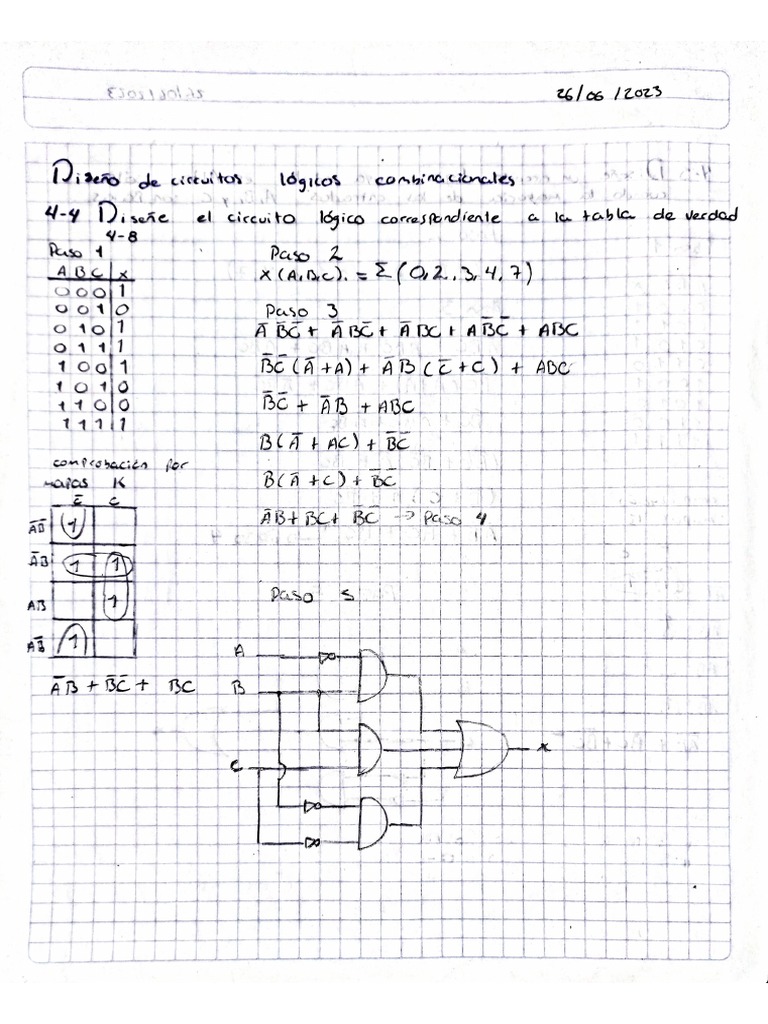 26/06/2023
Diseño de circuitos lógicos combinacionales
4-4 Diseñe el circuito lógico correspondiente a la tabla de verdad
4-8
Paso 1
A B C x
0 0 0 1
0 0 1 0
0 1 0 1
0 1 1 1
1 0 0 1
1 0 1 0
1 1 0 0
1 1 1 1
Paso 2
x(A,B,C). = Σ(0,2,3,4,7)
Paso 3
A̅B̅C̅ + A̅BC̅ + A̅BC + AB̅C̅ + ABC
B̅C̅(A̅+A) + A̅B(C̅+C) + ABC
B̅C̅ + A̅B + ABC
B(A̅ + AC) + B̅C̅
B(A̅ + C) + B̅C̅
A̅B + BC + B̅C̅ → Paso 4
comprobación por
mapas K
C̅ C
A̅B̅ 1
A̅B 1 1
AB 1
AB̅ 1
A̅B + B̅C̅ + BC
Paso 5
A
B
C
x